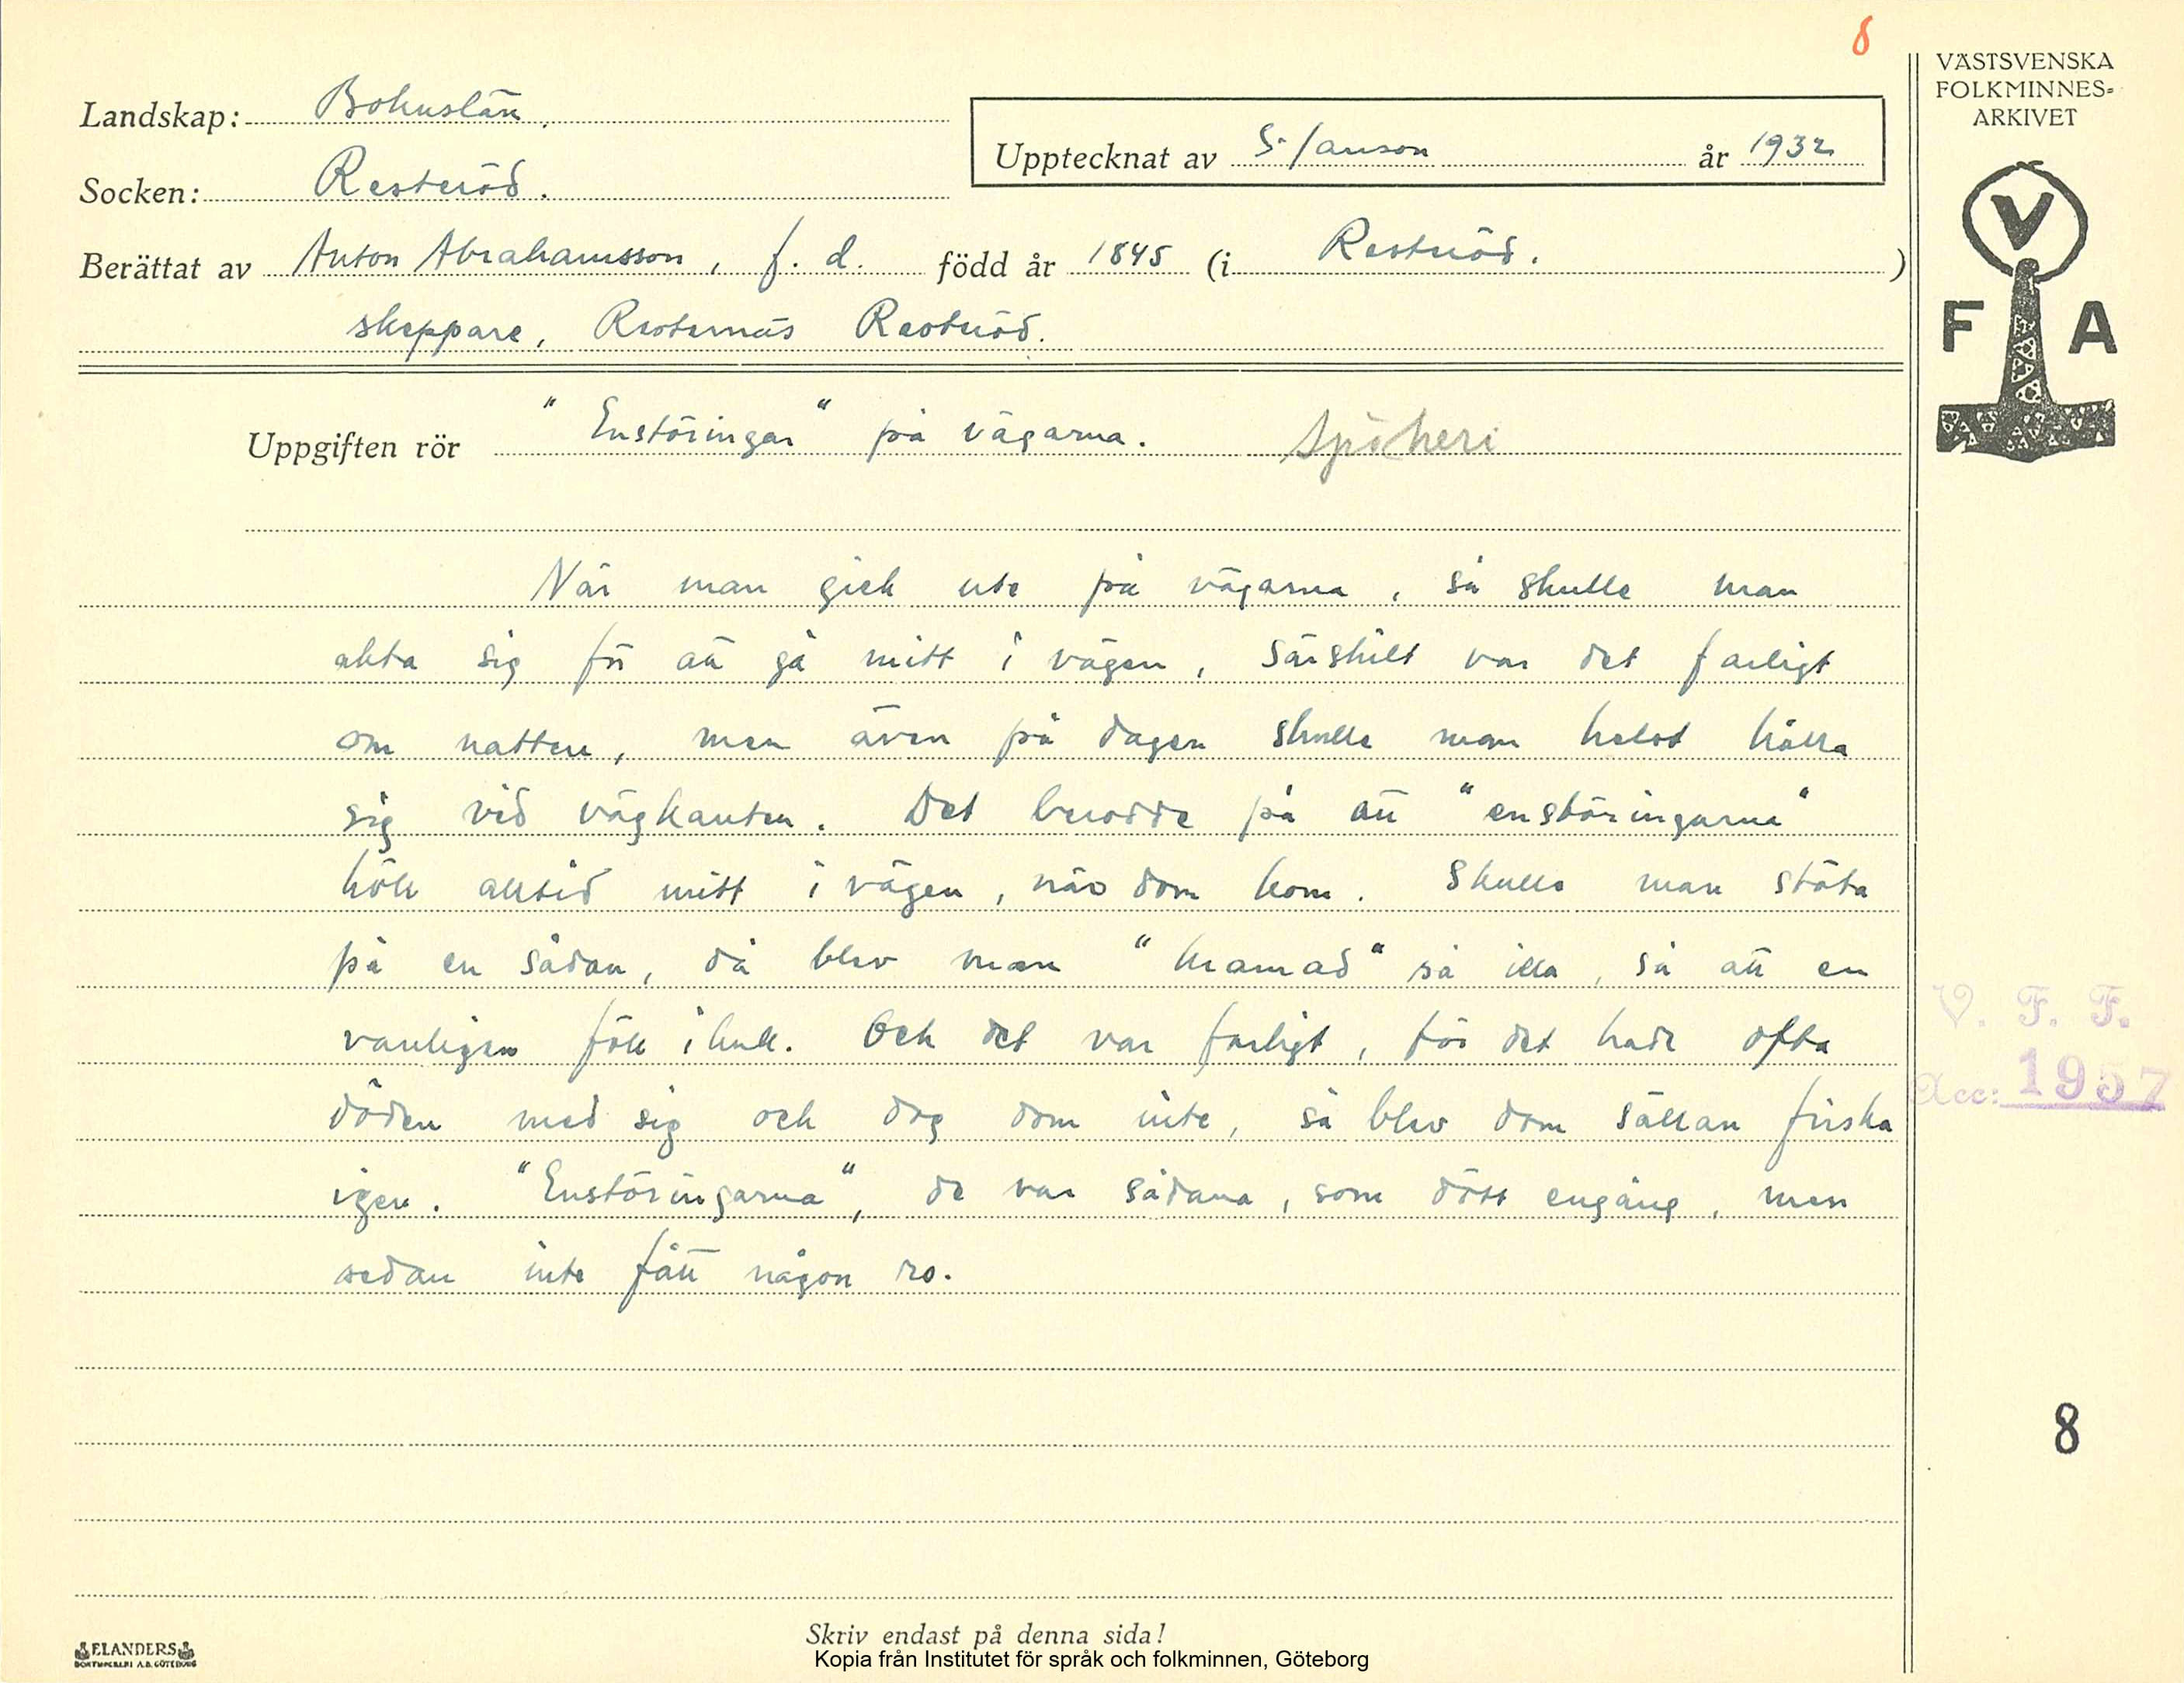 8
VÄSTSVENSKA
FOLKMINNES-
ARKIVET
Landskap: Bohuslän.
Upptecknat av S. Janson år 1932
Socken: Resteröd.
Berättat av Anton Abrahamsson, f. d. född år 1845 (i Resteröd. )
skeppare, Resternäs Resteröd.
V
F A
Uppgiften rör "Enstöringar" på vägarna. Spökeri
När man gick ute på vägarna, så skulle man
akta sig för att gå mitt i vägen, särskilt var det farligt
om natten, men även på dagen skulle man helst hålla
sig vid vägkanten. Det berodde på att "enstöringarna"
höll alltid mitt i vägen, när dom kom. Skulle man stöta
på en sådan, då blev man "kramad" så illa, så att en
vanligen föll ihull. Och det var farligt, för det hade ofta
döden med sig och dog dom inte, så blev dom sällan friska
igen. "Enstöringarna", de var sådana, som dött engång, men
sedan inte fått någon ro.
V. F. F.
Acc: 1957
8
Skriv endast på denna sida!
ELANDERS
BOKTRYCKERI A.B. GÖTEBORG
Kopia från Institutet för språk och folkminnen, Göteborg